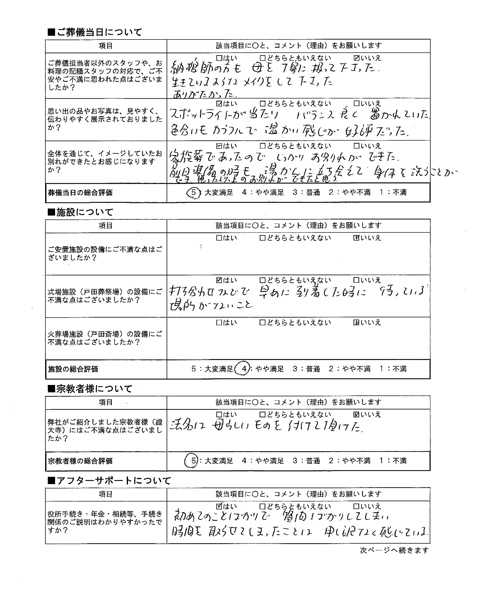 ■ご葬儀当日について
項目 該当項目に○と、コメント（理由）をお願いします
ご葬儀担当者以外のスタッフや、お料理の配膳スタッフの対応で、ご不安やご不満に思われた点はございましたか？
□はい □どちらともいえない ☑いいえ
納棺師の方も 母を丁寧に扱って下さった。
生きているようなメイクをして下さった。
ありがたかった。
思い出の品やお写真は、見やすく、伝わりやすく展示されておりましたか？
☑はい □どちらともいえない □いいえ
スポットライトが当たり バランス良く 置かれていた。
色合いもカラフルで 温かい感じが 好評だった。
全体を通して、イメージしていたお別れができたとお感じになりますか？
☑はい □どちらともいえない □いいえ
家族葬であったので しっかり お別れができた。
前日準備の時も、湯かんに立ち会えて 身体を洗うことが
でき、思った以上のお別れができたと思う
葬儀当日の総合評価 5：大変満足 4：やや満足 3：普通 2：やや不満 1：不満
■施設について
項目 該当項目に○と、コメント（理由）をお願いします
ご安置施設の設備にご不満な点はございましたか？
□はい □どちらともいえない ☑いいえ
式場施設（戸田葬祭場）の設備にご不満な点はございましたか？
☑はい □どちらともいえない □いいえ
打ち合わせなどで 早めに 到着した時に 待っている
場所がないこと
火葬場施設（戸田斎場）の設備にご不満な点はございましたか？
□はい □どちらともいえない ☑いいえ
施設の総合評価 5：大変満足 4：やや満足 3：普通 2：やや不満 1：不満
■宗教者様について
項目 該当項目に○と、コメント（理由）をお願いします
弊社がご紹介しました宗教者様（證大寺）にはご不満な点はございましたか？
□はい □どちらともいえない ☑いいえ
法名は 母らしいものを 付けて頂けた。
宗教者様の総合評価 5：大変満足 4：やや満足 3：普通 2：やや不満 1：不満
■アフターサポートについて
項目 該当項目に○と、コメント（理由）をお願いします
役所手続き・年金・相続等、手続き関係のご説明はわかりやすかったですか？
☑はい □どちらともいえない □いいえ
初めてのことばかりで 質問ばかりしてしまい
時間を取らせてしまったことは 申し訳なく感じている
次ページへ続きます